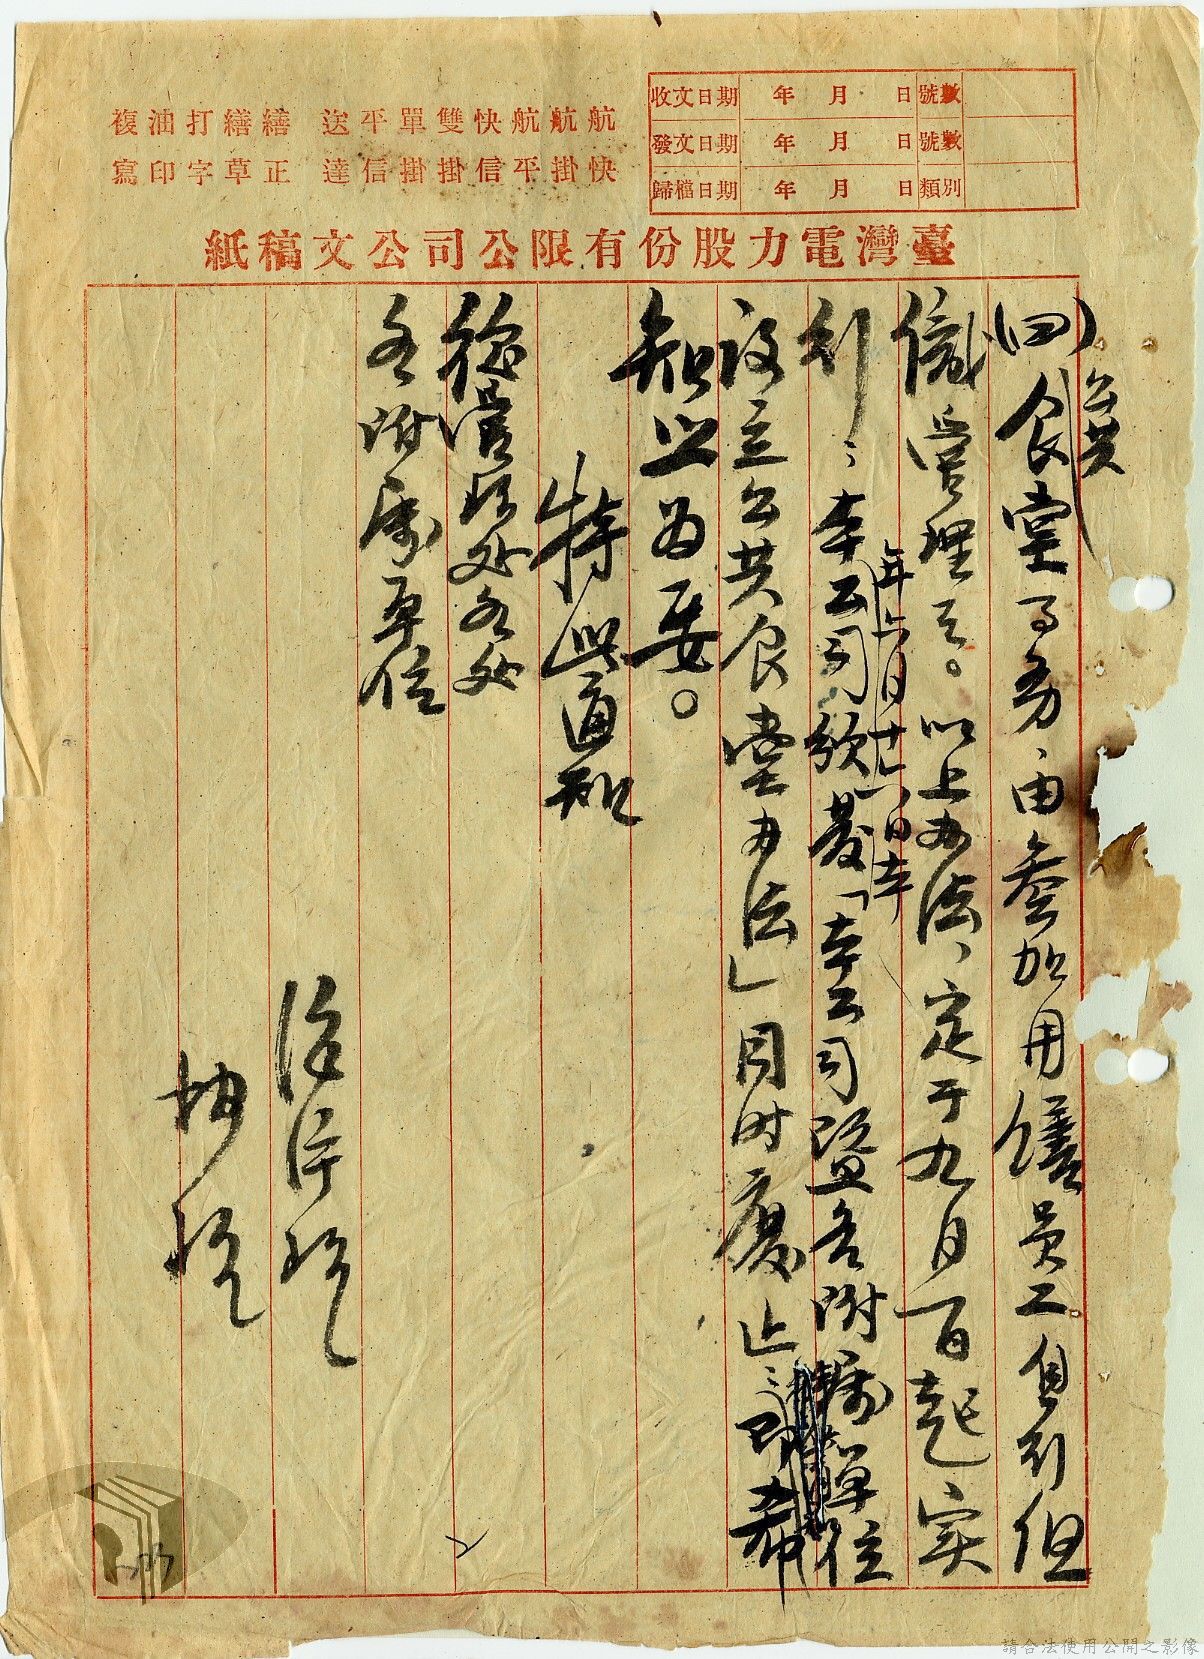 收文日期 年 月 日 號數
發文日期 年 月 日 號數
歸檔日期 年 月 日 類別
航快
航掛
航平
快信
雙掛
單掛
平信
送達
繕正
繕草
打字
油印
複寫
臺灣電力股份有限公司公文稿紙
公共
(四)食堂事務由參加用膳員工自行組
織管理之。以上办法,定于九月一日起实
年六月廿六日
行;本公司頒發「本公司暨各附屬單位
設立公共食堂办法」同时廢止;即希
知照为要。
特此通知
总管理处各处
各附属单位